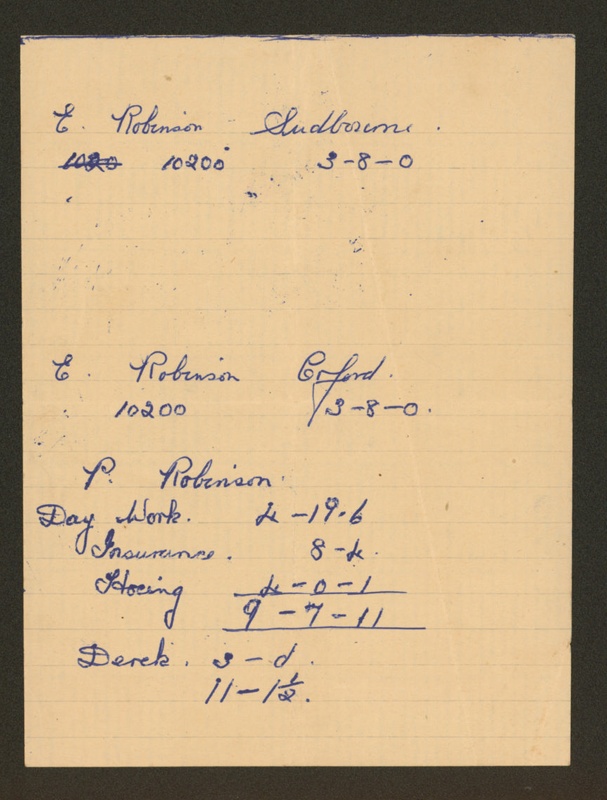 E. Robinson Sudbourne.
1020 10200 3-8-0
E. Robinson Orford.
10200 3-8-0.
P. Robinson.
Day Work. 4-19-6
Insurance. 8-4.
Hoeing 4-0-1
9-7-11
Derek. 3-d.
11-1½.